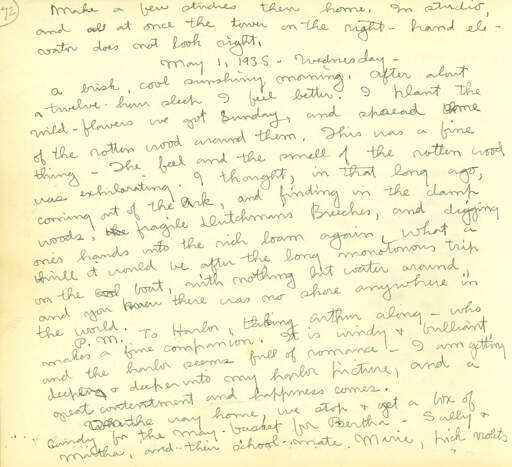 72
Make a few studies then home. In studio,
and all at once the tower on the right-hand ele-
vator does not look right.
May 1, 1935 - Wednesday -
a brisk, cool sunshiny morning. After about
a twelve-hour sleep I feel better. I plant the
wild-flowers we got Sunday, and spread some
of the rotten wood around them. This was a fine
thing - The feel and the smell of the rotten wood
was exhilarating. I thought, in that long ago,
coming out of the Ark, and finding in the damp
woods, the fragile Dutchmans Breeches, and digging
one's hands into the rich loam again, what a
thrill it would be after the long monotonous trip
on the boat, with nothing but water around,
and you knew there was no shore anywhere in
the world.
P.M. To Harbor, taking Arthur along - who
makes a fine companion. It is windy & brilliant,
and the harbor seems full of romance - I am getting
deeper & deeper into my harbor picture, and a
great contentment and happiness comes.
On the way home, we stop & get a box of
candy for the May-basket for Bertha - Sally &
Martha, and their school-mate Mime, pick violets